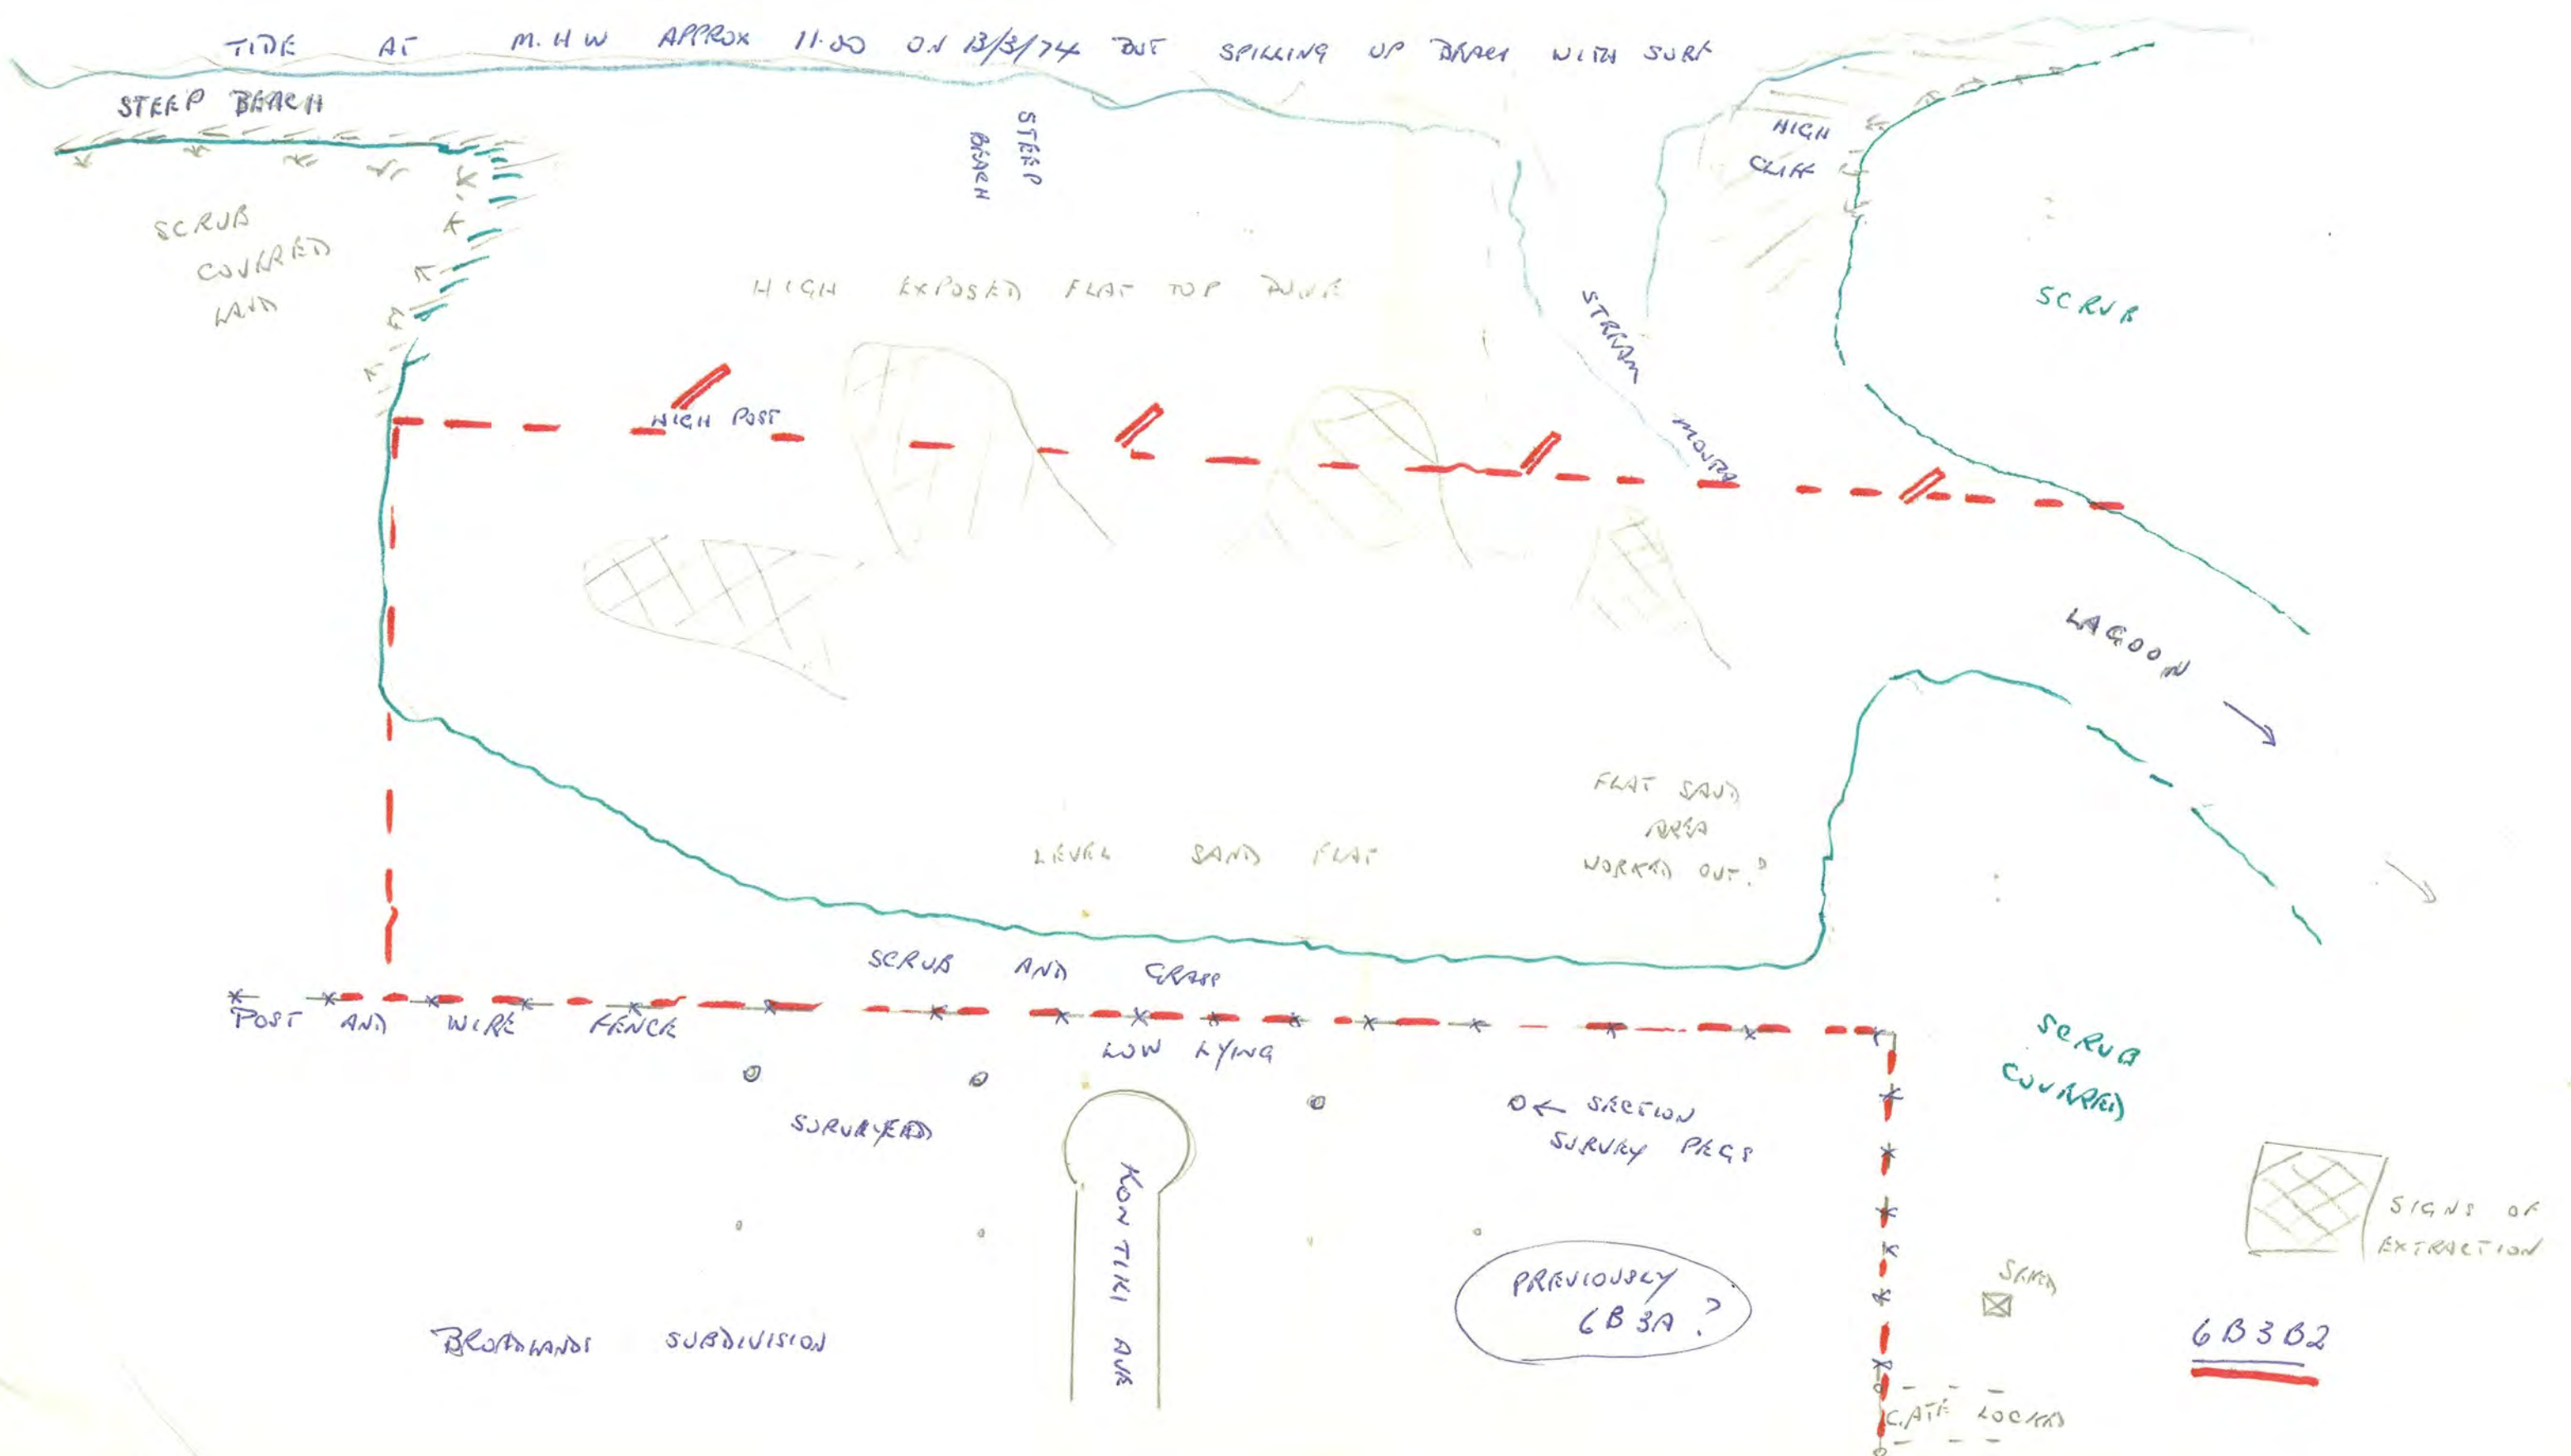 TIDE AT M.H W APPROX 11.00 ON 13/3/74 BUT SPILLING UP BEACH WITH SURF
STEEP BEACH
STEEP
BEACH
HIGH
CLIFF
SCRUB
COVERED
LAND
HIGH EXPOSED FLAT TOP DUNE
SCRUB
STREAM
MOUTH
HIGH POST
LAGOON
FLAT SAND
AREA
WORKED OUT.?
LEVEL SAND FLAT
SCRUB AND GRASS
POST AND WIRE FENCE
LOW LYING
SCRUB
COVERED
SURVEYED
SECTION
SURVEY PEGS
KON TIKI AVE
SIGNS OF
EXTRACTION
PREVIOUSLY
6B 3A ?
SHED
BROADLANDS SUBDIVISION
6B3B2
GATE LOCKED